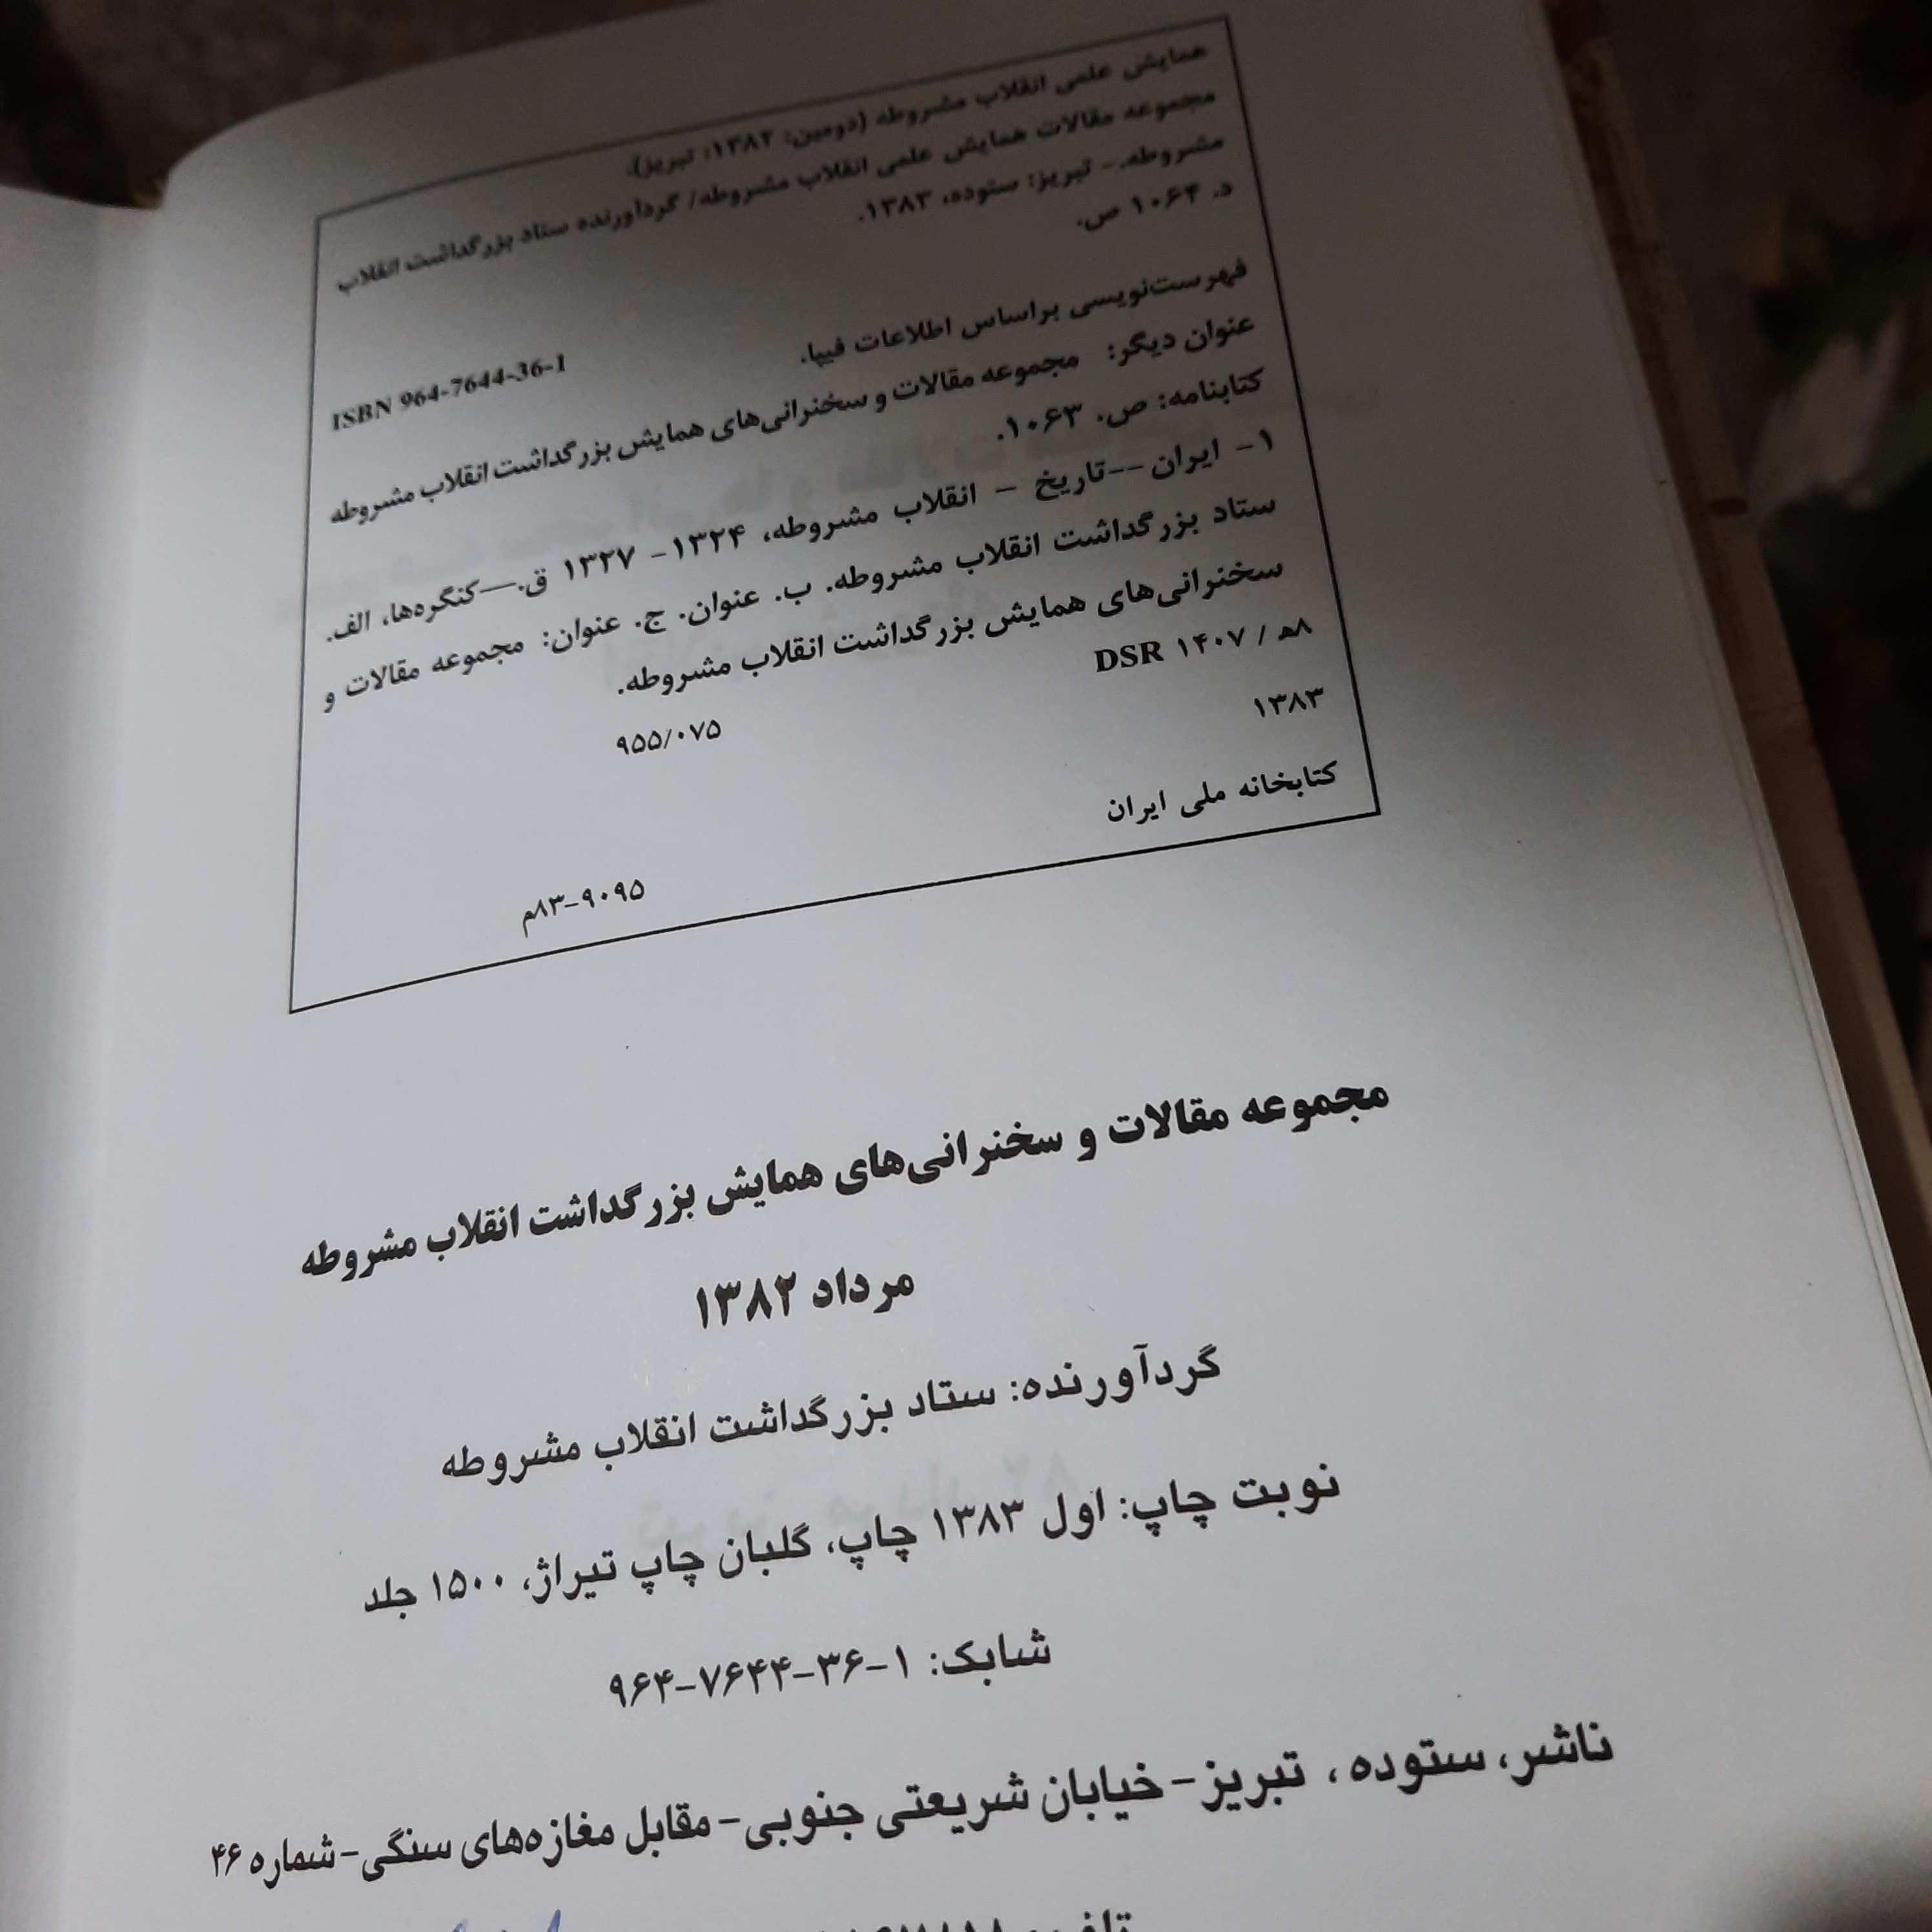 همایش علمی انقلاب مشروطه (دومین: ۱۳۸۲: تبریز).
مجموعه مقالات همایش علمی انقلاب مشروطه/ گردآورنده ستاد بزرگداشت انقلاب
مشروطه.-- تبریز: ستوده، ۱۳۸۳.
د. ۱۰۶۴ ص.
ISBN 964-7644-36-1
فهرست‌نویسی براساس اطلاعات فیپا.
عنوان دیگر: مجموعه مقالات و سخنرانی‌های همایش بزرگداشت انقلاب مشروطه
کتابنامه: ص. ۱۰۶۳.
۱- ایران --تاریخ – انقلاب مشروطه، ۱۳۲۴- ۱۳۲۷ ق.—کنگره‌ها، الف.
ستاد بزرگداشت انقلاب مشروطه. ب. عنوان. ج. عنوان: مجموعه مقالات و
سخنرانی‌های همایش بزرگداشت انقلاب مشروطه.
DSR ۱۴۰۷ / ۸ه‍
۹۵۵/۰۷۵
۱۳۸۳
کتابخانه ملی ایران
۸۳-۹۰۹۵م
مجموعه مقالات و سخنرانی‌های همایش بزرگداشت انقلاب مشروطه
مرداد ۱۳۸۲
گردآورنده: ستاد بزرگداشت انقلاب مشروطه
نوبت چاپ: اول ۱۳۸۳ چاپ، گلبان چاپ تیراژ، ۱۵۰۰ جلد
شابک: ۱-۳۶-۷۶۴۴-۹۶۴
ناشر، ستوده ، تبریز- خیابان شریعتی جنوبی- مقابل مغازه‌های سنگی- شماره ۴۶